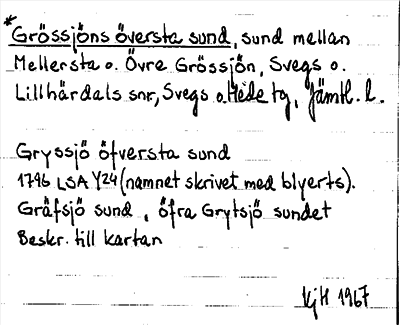 *Grössjöns översta sund, sund mellan
Mellersta o. Övre Grössjön, Svegs o.
Lillhärdals snr, Svegs o. Hede tg, Jämtl. l.
Gryssjö öfversta sund
1746 LSA Y24 (namnet skrivet med blyerts).
Gräfsjö sund, öfra Grytsjö sundet
Beskr. till kartan
KjH 1967